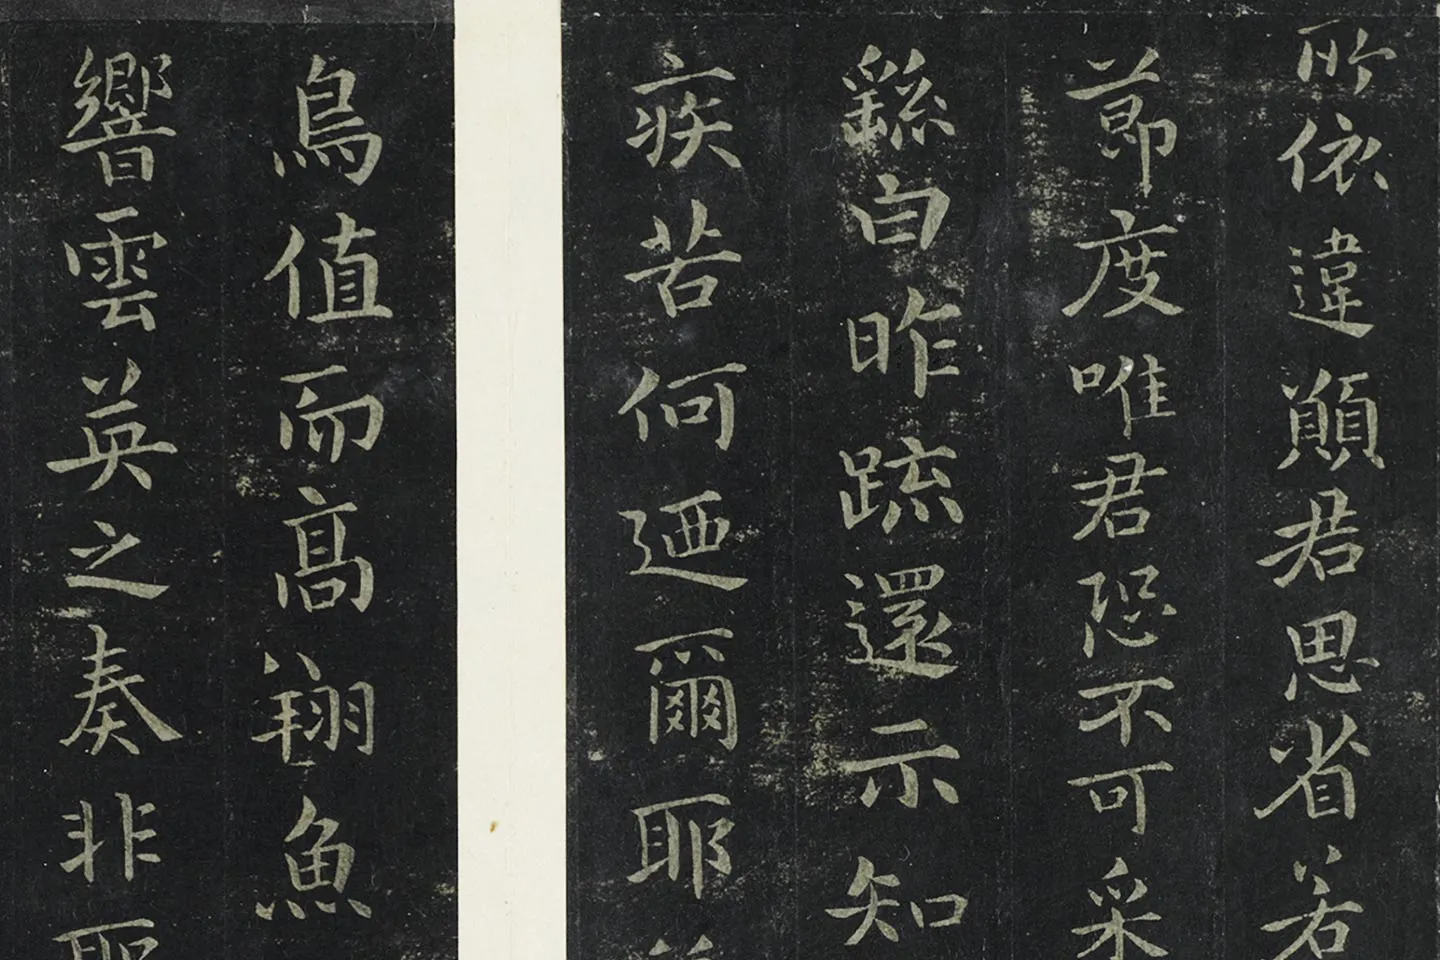 所依違願君思省若
節度唯君恐不可采
繇自昨疏還示知
疾苦何廼爾耶
鳥值而高翔魚
響雲英之奏非耶